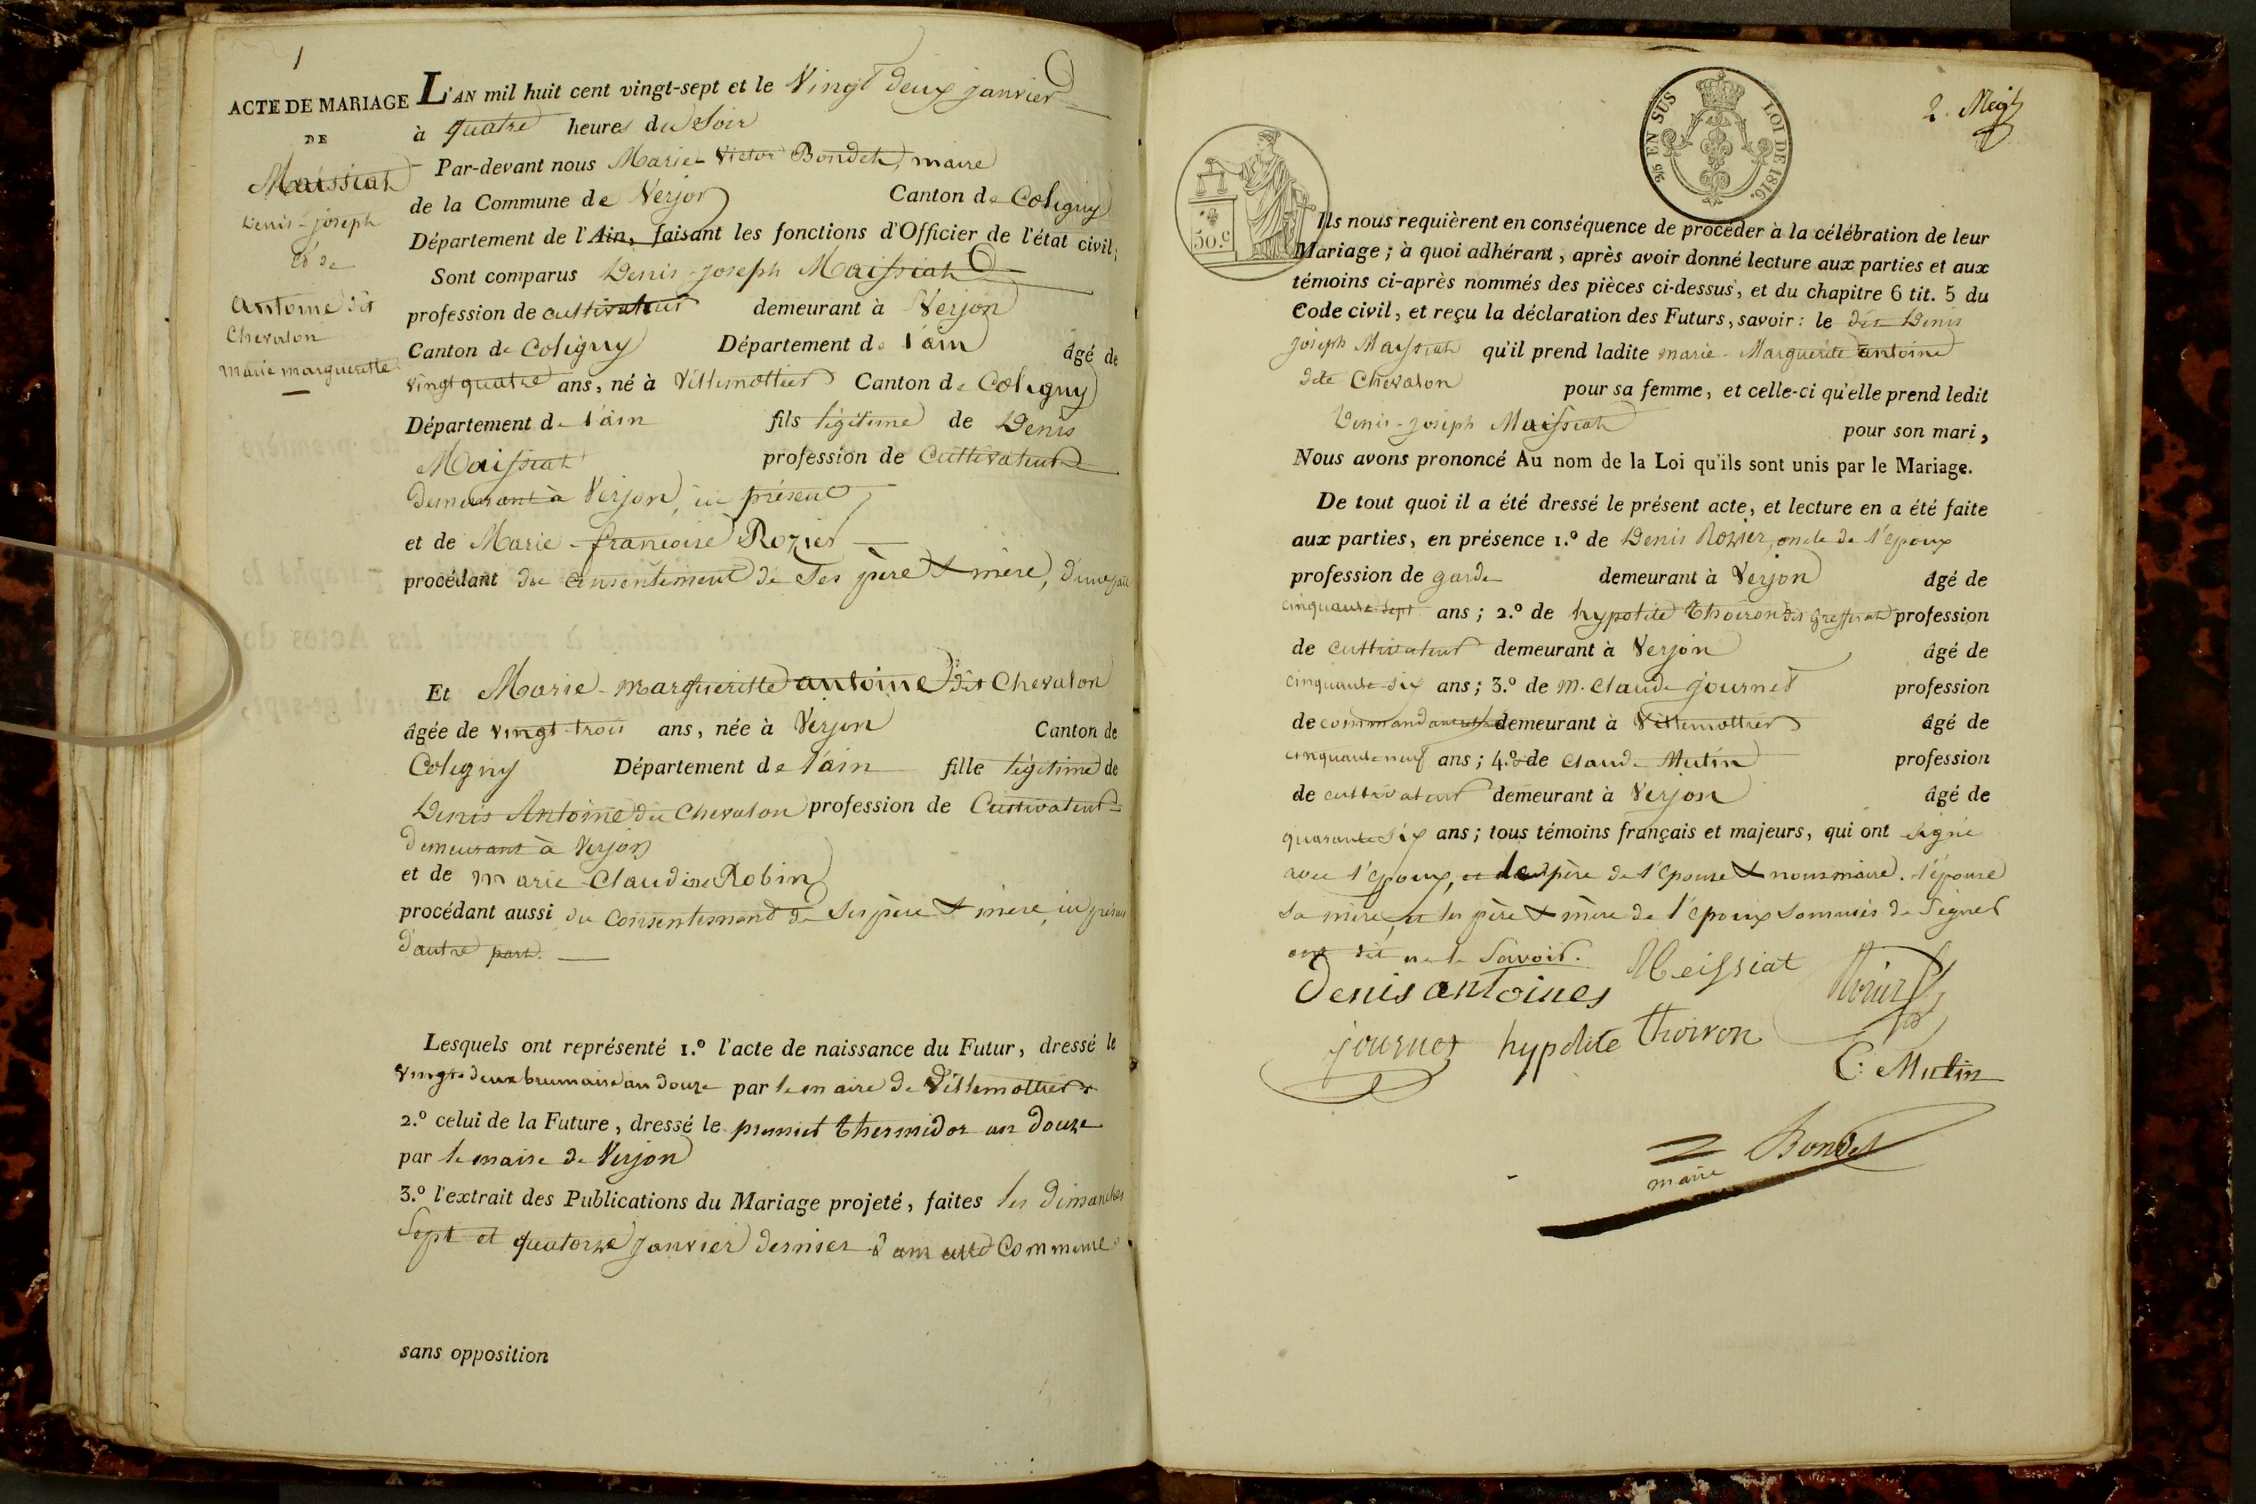 1
ACTE DE MARIAGE
DE
Maissiat
Denis-joseph
et de
antoine dit
Chevalon
marie marguerette
L'AN mil huit cent vingt-sept et le Vingt deux janvier
à quatre heures du Soir
Par-devant nous Marie Victor Bondet, maire
de la Commune de Verjon Canton de Coligny
Département de l'Ain, faisant les fonctions d'Officier de l'état civil,
Sont comparus Denis-joseph Maissiat
profession de cultivateur demeurant à Verjon
Canton de Coligny Département de l'ain âgé de
vingt quatre ans, né à Villemottier Canton de Coligny
Département de l'ain fils légitime de Denis
Maissiat profession de Cultivateur
demeurant à Verjon, ici présent
et de Marie-francoise Rozier
procédant du consentement de Ses père & mère, d'une part
Et Marie-marguerette antoine dit Chevalon
âgée de vingt-trois ans, née à Verjon Canton de
Coligny Département de l'ain fille légitime de
Denis Antoine dit Chevalon profession de Cultivateur
demeurant à Verjon
et de marie-Claudine Robin
procédant aussi du Consentement de Ses père & mère, ici présents
d'autre part.
Lesquels ont représenté 1.º l'acte de naissance du Futur, dressé le
vingt deux brumaire an douze par le maire de Villemottier
2.º celui de la Future, dressé le premier thermidor an douze
par le maire de Verjon
3.º l'extrait des Publications du Mariage projeté, faites les dimanches
Sept et quatorze janvier dernier dans cette Commune
sans opposition
2.
50.c
25 EN SUS LOI DE 1816.
Ils nous requièrent en conséquence de procéder à la célébration de leur
Mariage; à quoi adhérant, après avoir donné lecture aux parties et aux
témoins ci-après nommés des pièces ci-dessus, et du chapitre 6 tit. 5 du
Code civil, et reçu la déclaration des Futurs, savoir: le dit Denis
joseph Maissiat qu'il prend ladite marie-Marguerite antoine
dite Chevalon pour sa femme, et celle-ci qu'elle prend ledit
Denis-joseph Maissiat pour son mari,
Nous avons prononcé Au nom de la Loi qu'ils sont unis par le Mariage.
De tout quoi il a été dressé le présent acte, et lecture en a été faite
aux parties, en présence 1.º de Denis Rozier, oncle de l'époux
profession de garde demeurant à Verjon âgé de
cinquante-sept ans; 2.º de hypolite thoiron dit profession
de cultivateur demeurant à Verjon âgé de
cinquante-six ans; 3.º de m. Claude journet profession
de demeurant à Villemottier âgé de
cinquante neuf ans; 4.º de Claude Mutin profession
de cultivateur demeurant à Verjon âgé de
quarante six ans; tous témoins français et majeurs, qui ont signé
avec l'époux, père de l'épouse & nous maire. l'épouse
sa mère, et les père & mère de l'époux sommés de signer
ont dit ne le Savoir.
Denis antoines Meissiat Rozier
journet hypolite thoiron
C: Mutin
Bondet
maire